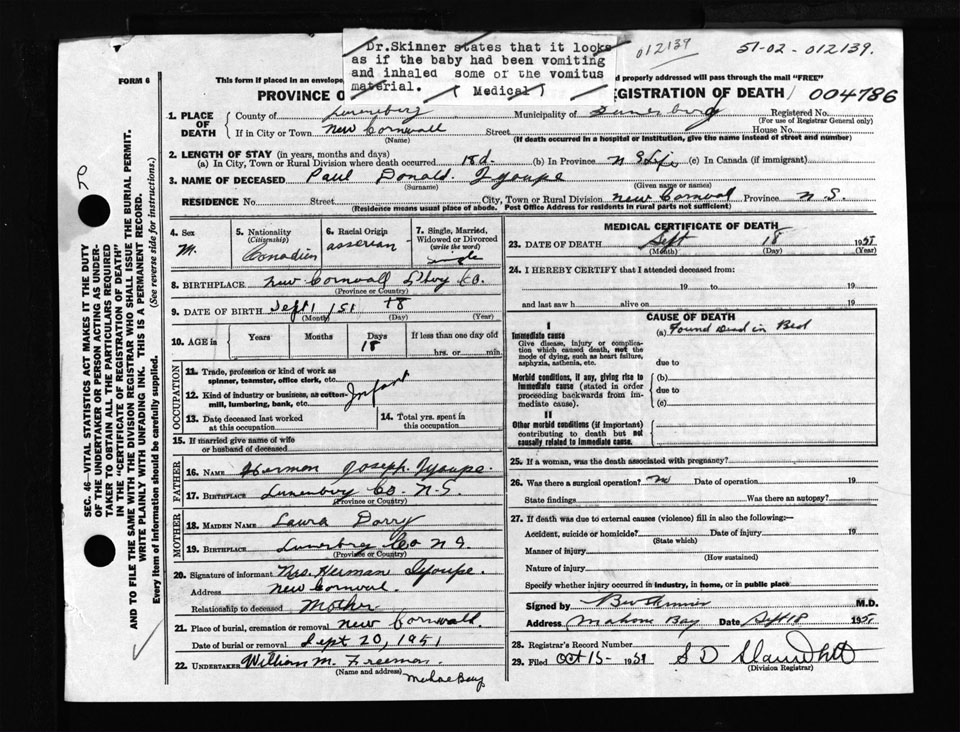 Dr.Skinner states that it looks
as if the baby had been vomiting
and inhaled some of the vomitus
material. ( Medical )
012139
51-02-012139.
FORM 6
This form if placed in an envelope, properly addressed will pass through the mail "FREE"
PROVINCE O REGISTRATION OF DEATH
004786
1. PLACE OF DEATH
County of Lunenburg Municipality of Lunenburg Registered No.
(For use of Registrar General only)
If in City or Town New Cornwall Street House No.
(Name) (If death occurred in a hospital or institution, give the name instead of street and number)
2. LENGTH OF STAY (in years, months and days)
(a) In City, Town or Rural Division where death occurred 18d. (b) In Province N S Life (c) In Canada (if immigrant)
3. NAME OF DECEASED Paul Donald
(Surname) (Given name or names)
RESIDENCE No. Street City, Town or Rural Division New Cornwal Province N S.
(Residence means usual place of abode. Post Office Address for residents in rural parts not sufficient)
4. Sex
M.
5. Nationality
(Citizenship)
Canadian
6. Racial Origin
7. Single, Married,
Widowed or Divorced
(write the word)
single
8. BIRTHPLACE New Cornwall Co.
(Province or Country)
9. DATE OF BIRTH Sept 1 / 51 18
(Month) (Day) (Year)
10. AGE in
Years Months Days
18
If less than one day old
hrs. or min.
OCCUPATION
11. Trade, profession or kind of work as
spinner, teamster, office clerk, etc.
12. Kind of industry or business, as cotton-
mill, lumbering, bank, etc.
Infant
13. Date deceased last worked
at this occupation
14. Total yrs. spent in
this occupation
15. If married give name of wife
or husband of deceased
FATHER
16. NAME Herman Joseph
17. BIRTHPLACE Lunenburg Co N.S.
(Province or Country)
MOTHER
18. MAIDEN NAME Laura Dorry
19. BIRTHPLACE Co N S
(Province or Country)
20. Signature of informant Mrs. Herman
Address New Cornwal
Relationship to deceased Mother
21. Place of burial, cremation or removal New Cornwall.
Date of burial or removal Sept 20, 1951
22. UNDERTAKER William M. Freeman.
(Name and address)
Mahone Bay
MEDICAL CERTIFICATE OF DEATH
23. DATE OF DEATH Sept 18 1951
(Month) (Day) (Year)
24. I HEREBY CERTIFY that I attended deceased from:
19 to 19
and last saw h alive on 19
CAUSE OF DEATH
I
Immediate cause
Give disease, injury or complica-
tion which caused death, not the
mode of dying, such as heart failure,
asphyxia, asthenia, etc.
(a) Found Dead in Bed
due to
Morbid conditions, if any, giving rise to
immediate cause (stated in order
proceeding backwards from im-
mediate cause).
(b)
due to
(c)
II
Other morbid conditions (if important)
contributing to death but not
causally related to immediate cause.
25. If a woman, was the death associated with pregnancy?
26. Was there a surgical operation? no Date of operation 19
State findings Was there an autopsy?
27. If death was due to external causes (violence) fill in also the following:—
Accident, suicide or homicide? Date of injury 19
(State which)
Manner of injury
(How sustained)
Nature of injury
Specify whether injury occurred in industry, in home, or in public place
Signed by M.D.
Address Mahone Bay Date Sept 18 1951
28. Registrar's Record Number
29. Filed Oct 15 - 1951 S D
(Division Registrar)
SEC. 46—VITAL STATISTICS ACT MAKES IT THE DUTY
OF THE UNDERTAKER OR PERSON ACTING AS UNDER-
TAKER TO OBTAIN ALL THE PARTICULARS REQUIRED
IN THE "CERTIFICATE OF REGISTRATION OF DEATH"
AND TO FILE THE SAME WITH THE DIVISION REGISTRAR WHO SHALL ISSUE THE BURIAL PERMIT.
WRITE PLAINLY WITH UNFADING INK. THIS IS A PERMANENT RECORD.
Every item of information should be carefully supplied. (See reverse side for instructions.)